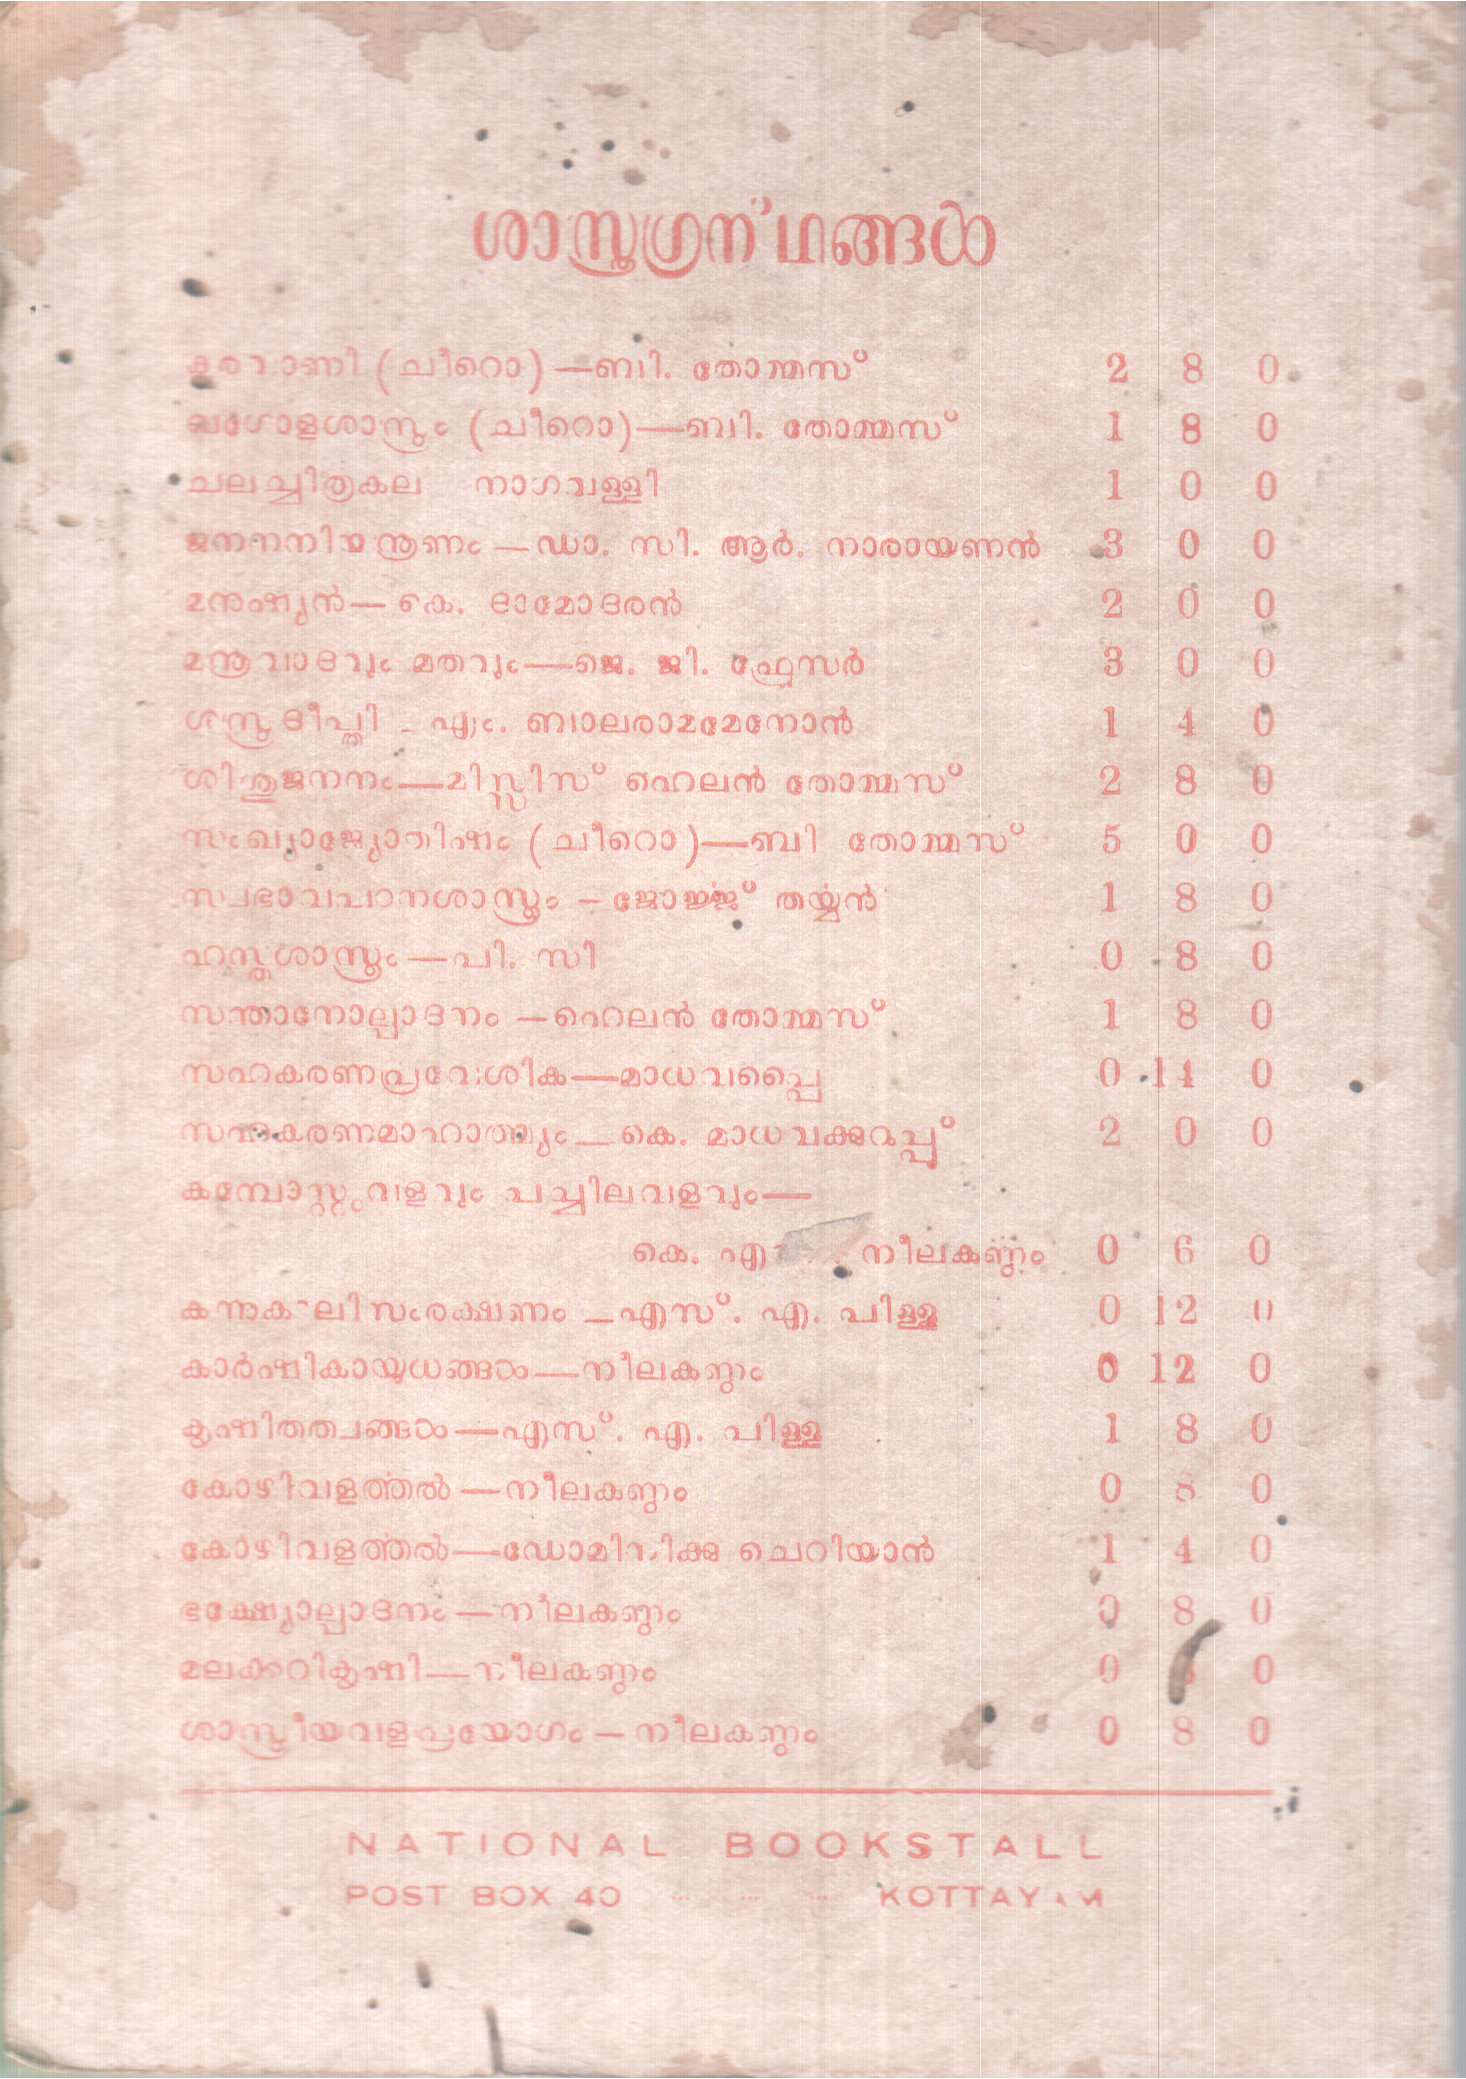 ശാസ്ത്രഗ്രന്ഥങ്ങൾ
കരവാണി (ചീറൊ)—ബി. തോമ്മസ് 2 8 0
ഖഗോളശാസ്ത്രം (ചീറൊ)—ബി. തോമ്മസ് 1 8 0
ചലച്ചിത്രകല നാഗവള്ളി 1 0 0
ജനനനിയന്ത്രണം—ഡാ. സി. ആർ. നാരായണൻ 3 0 0
മനുഷ്യൻ—കെ. ദാമോദരൻ 2 0 0
മന്ത്രവാദവും മതവും—ജെ. ജി. ഫ്രേസർ 3 0 0
ദീപ്തി - എം. ബാലരാമമേനോൻ 1 4 0
ശിശുജനനം—മിസ്സിസ് ഹെലൻ തോമ്മസ് 2 8 0
സംഖ്യാജ്യോതിഷം (ചീറൊ)—ബി തോമ്മസ് 5 0 0
സ്വഭാവപഠനശാസ്ത്രം—ജോർജ്ജ് തയ്യൻ 1 8 0
ഹസ്തശാസ്ത്രം—പി. സി 0 8 0
സന്താനോല്പാദനം—ഹെലൻ തോമ്മസ് 1 8 0
സഹകരണപ്രവേശിക—മാധവപ്പൈ 0 14 0
സഹകരണമാഹാത്മ്യം—കെ. മാധവക്കുറുപ്പ് 2 0 0
കമ്പോസ്റ്റുവളവും പച്ചിലവളവും—
കെ. നീലകണ്ഠം 0 6 0
കന്നുകാലിസംരക്ഷണം—എസ്. എ. പിള്ള 0 12 0
കാർഷികായുധങ്ങൾ—നീലകണ്ഠം 0 12 0
കൃഷിതത്വങ്ങൾ—എസ്. എ. പിള്ള 1 8 0
കോഴിവളർത്തൽ—നീലകണ്ഠം 0 8 0
കോഴിവളർത്തൽ—ഡോമിനിക്കു ചെറിയാൻ 1 4 0
ഭക്ഷ്യോല്പാദനം—നീലകണ്ഠം 0 8 0
മലക്കറികൃഷി—നീലകണ്ഠം 0 0
ശാസ്ത്രീയവളപ്രയോഗം—നീലകണ്ഠം 0 8 0
NATIONAL BOOKSTALL
POST BOX 40 ... ... ... KOTTAYAM